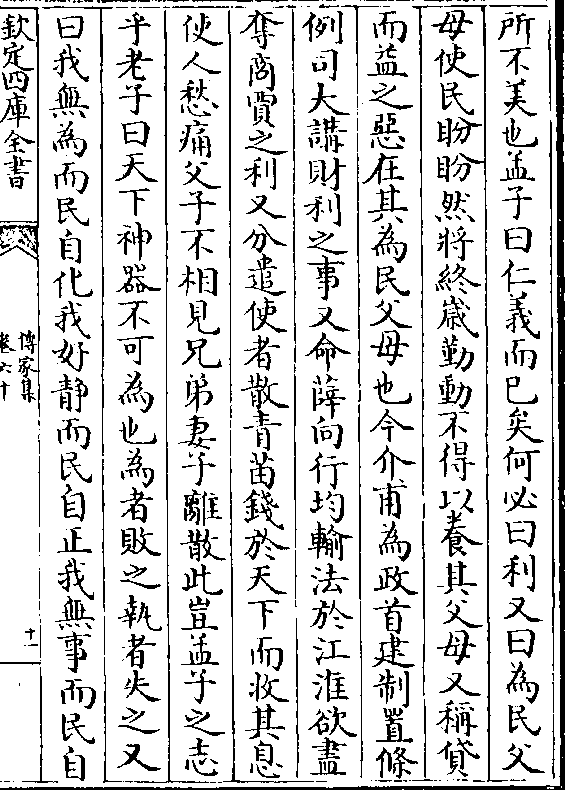 所不美也孟子曰仁義而已矣何必曰利又曰為民父
母使民盼盼然將終歲勤動不得以養其父母又稱貸
而益之惡在其為民父母也今介甫為政首建制置條
例司大講財利之事又命薛向行均輸法於江淮欲盡
奪商賈之利又分遣使者散青苗錢於天下而收其息
使人愁痛父子不相見兄弟妻子離散此豈孟子之志
乎老子曰天下神器不可為也為者敗之執者失之又
曰我無為而民自化我好静而民自正我無事而民自
欽定四庫全書
傳家集
卷六十
十一